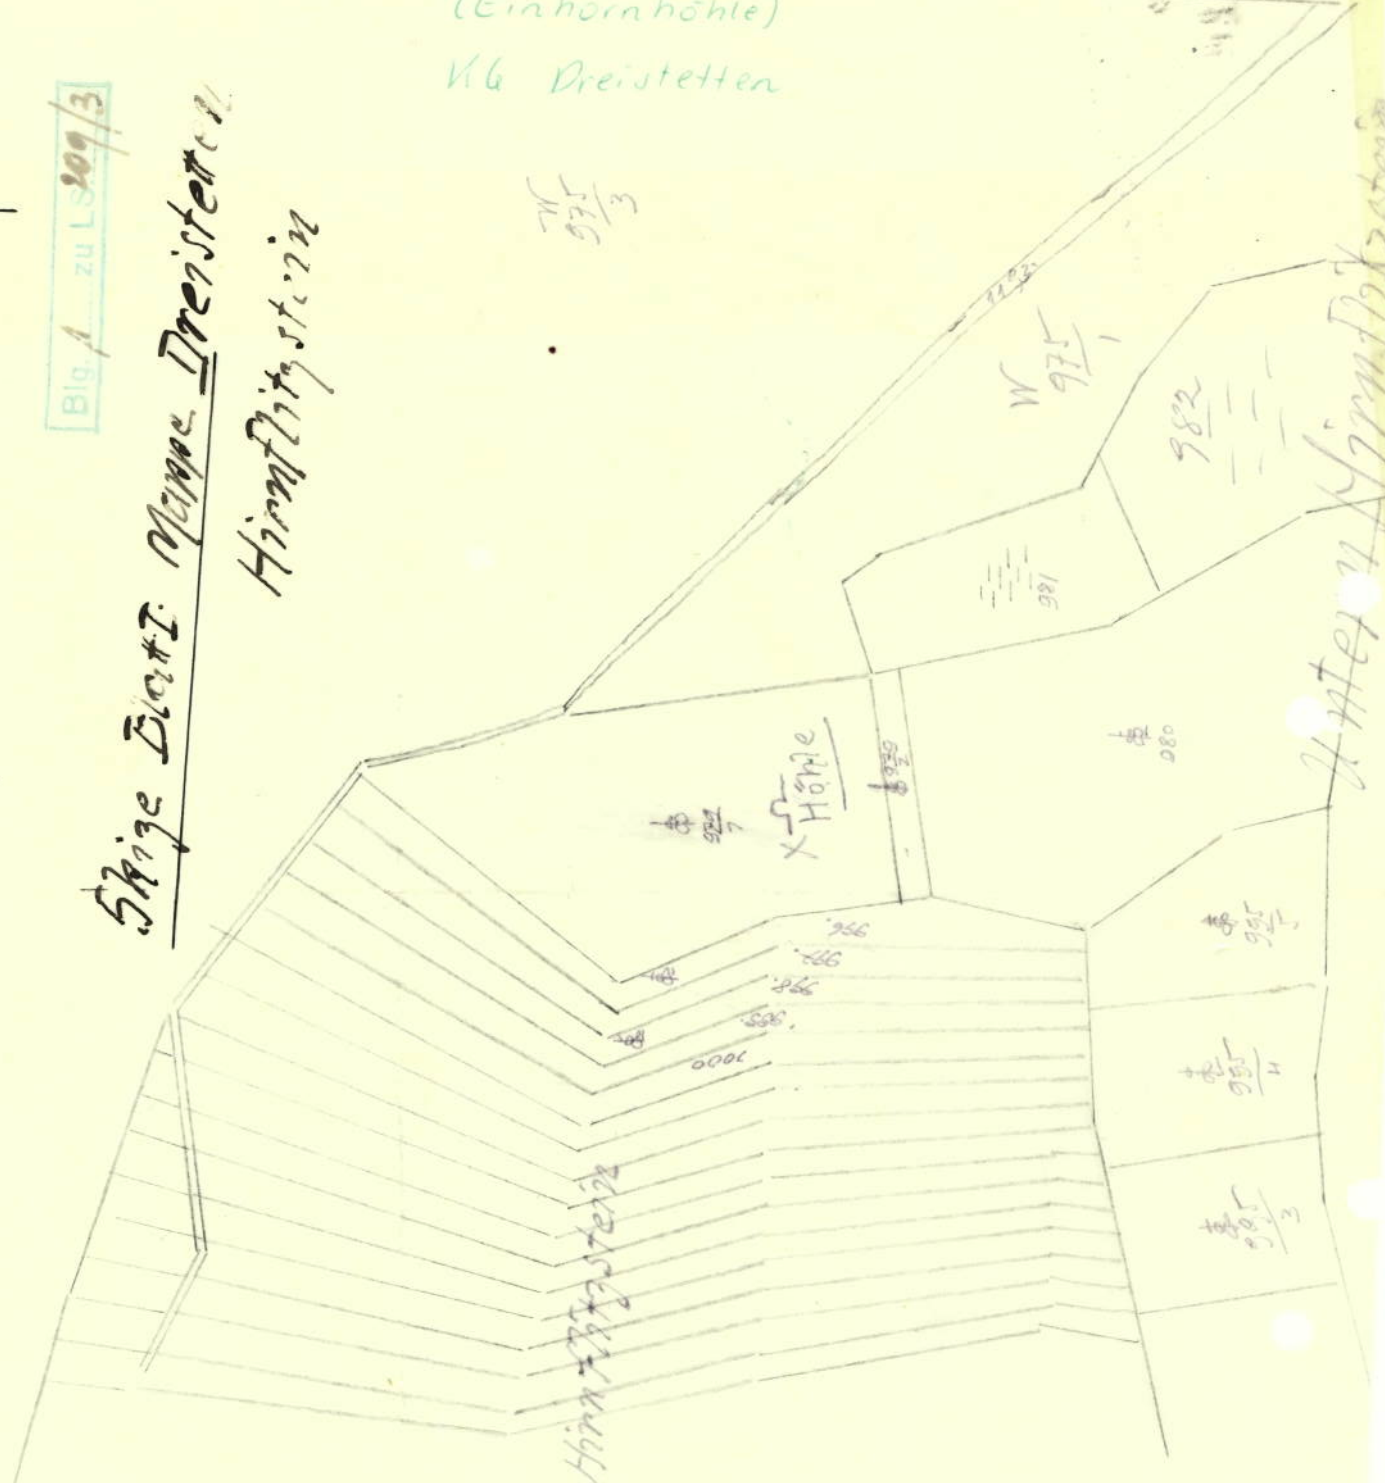 (Einhornhöhle)
KG Dreistetten
Blg. 1 zu LS 209/3
Skize Blatt I. Mappe Dreistetten
Hirnflitzstein
W
975
3
W
975
1
982
981
980
Höhle
X
996.
997.
998.
999.
1000
995
5
995
4
995
3
Hirnflitzstein
Untern